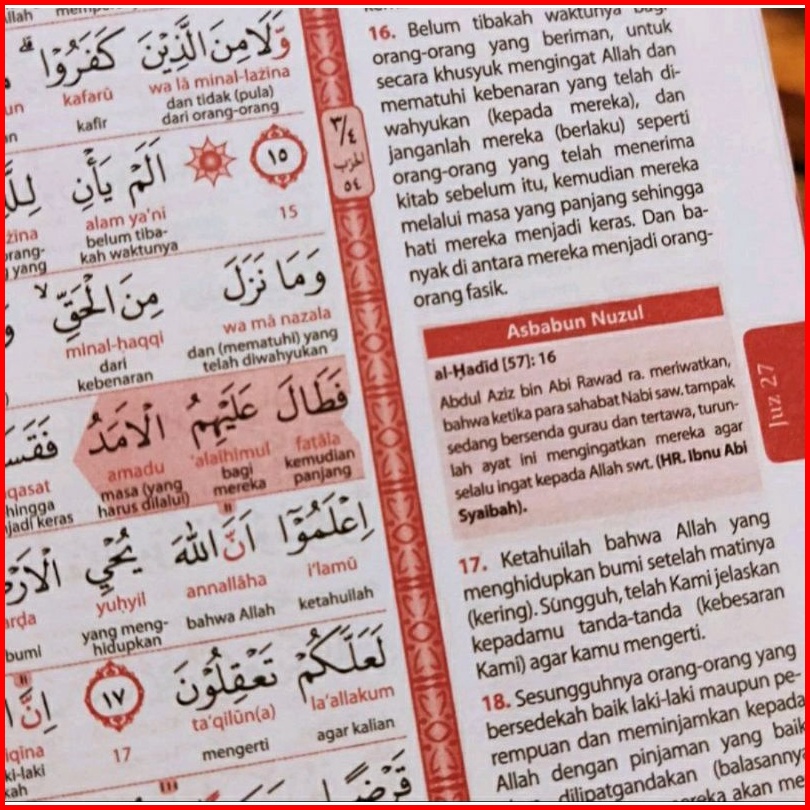 وَّلَا مِنَ الَّذِيْنَ كَفَرُوْا ۗ
kafarū wa lā minal-lażīna
kafir dan tidak (pula)
dari orang-orang
اَلَمْ يَأْنِ ١٥
alam ya'ni 15
belum tiba-
kah waktunya
yang
وَمَا نَزَلَ مِنَ الْحَقِّۙ
minal-ḥaqqi wa mā nazala
dari dan (mematuhi) yang
kebenaran telah diwahyukan
فَطَالَ عَلَيْهِمُ الْاَمَدُ
amadu 'alaihimul faṭāla
masa (yang bagi kemudian
harus dilalui) mereka panjang
hingga
jadi keras
اِعْلَمُوْٓا اَنَّ اللّٰهَ يُحْيِ
yuḥyil annallāha i'lamū
bumi yang meng- bahwa Allah ketahuilah
hidupkan
لَعَلَّكُمْ تَعْقِلُوْنَ ١٧
17 ta'qilūn(a) la'allakum
mengerti agar kalian
٣/٤
الحزب
٥٤
16. Belum tibakah waktunya bagi
orang-orang yang beriman, untuk
secara khusyuk mengingat Allah dan
mematuhi kebenaran yang telah di-
wahyukan (kepada mereka), dan
janganlah mereka (berlaku) seperti
orang-orang yang telah menerima
kitab sebelum itu, kemudian mereka
melalui masa yang panjang sehingga
hati mereka menjadi keras. Dan ba-
nyak di antara mereka menjadi orang-
orang fasik.
Asbabun Nuzul
al-Ḥadīd [57]: 16
Abdul Aziz bin Abi Rawad ra. meriwatkan,
bahwa ketika para sahabat Nabi saw. tampak
sedang bersenda gurau dan tertawa, turun-
lah ayat ini mengingatkan mereka agar
selalu ingat kepada Allah swt. (HR. Ibnu Abi
Syaibah).
17. Ketahuilah bahwa Allah yang
menghidupkan bumi setelah matinya
(kering). Sungguh, telah Kami jelaskan
kepadamu tanda-tanda (kebesaran
Kami) agar kamu mengerti.
18. Sesungguhnya orang-orang yang
bersedekah baik laki-laki maupun pe-
rempuan dan meminjamkan kepada
Allah dengan pinjaman yang baik
dilipatgandakan (balasannya
akan
Juz 27